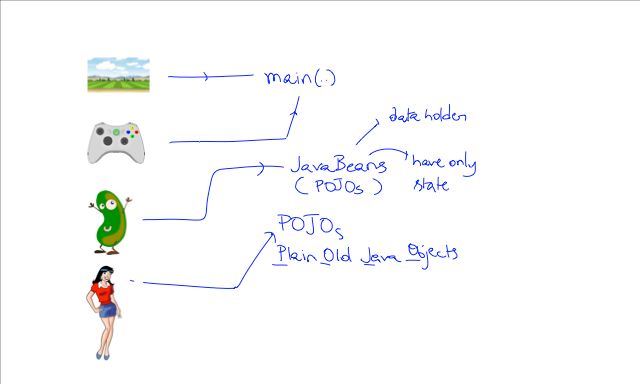 main(..)
data holder
JavaBeans
(POJOs)
have only
state
POJOs
Plain Old Java Objects